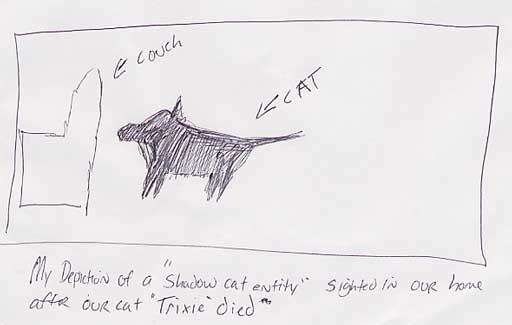 couch
CAT
My Depiction of a "shadow cat entity" sighted in our home
after our cat "Trixie" died